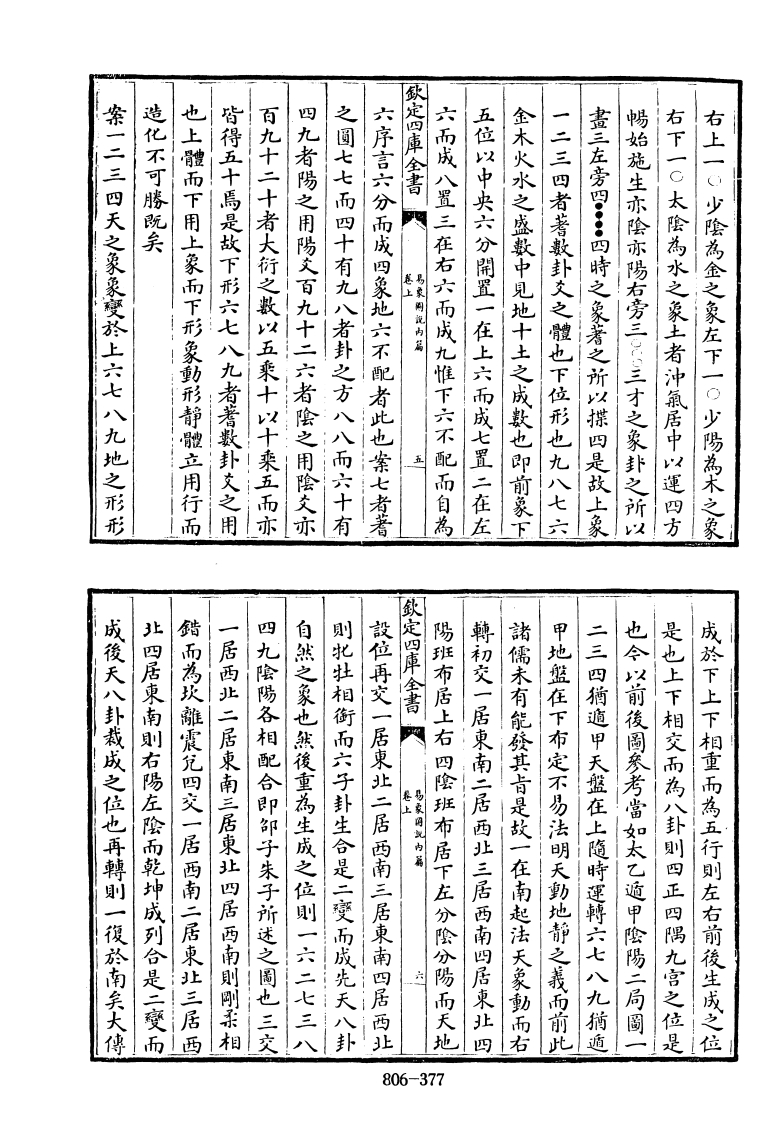 右上一○少陰為金之象左下一○少陽為木之象
右下一○太陰為水之象土者沖氣居中以運四方
暢始施生亦陰亦陽右旁三○○○三才之象卦之所以
畫三左旁四●●●●四時之象蓍之所以揲四是故上象
一二三四者蓍數卦爻之體也下位形也九八七六
金木火水之盛數中見地十土之成數也即前象下
五位以中央六分開置一在上六而成七置二在左
六而成八置三在右六而成九惟下六不配而自為
欽定四庫全書
易象圖說內篇
卷上
五
六序言六分而成四象地六不配者此也案七者蓍
之圓七七而四十有九八者卦之方八八而六十有
四九者陽之用陽爻百九十二六者陰之用陰爻亦
百九十二十者大衍之數以五乘十以十乘五而亦
皆得五十焉是故下形六七八九者蓍數卦爻之用
也上體而下用上象而下形象動形靜體立用行而
造化不可勝既矣
案一二三四天之象象變於上六七八九地之形形
成於下上下相重而為五行則左右前後生成之位
是也上下相交而為八卦則四正四隅九宮之位是
也今以前後圖參考當如太乙遁甲陰陽二局圖一
二三四猶遁甲天盤在上隨時運轉六七八九猶遁
甲地盤在下布定不易法明天動地靜之義而前此
諸儒未有能發其旨是故一在南起法天象動而右
轉初交一居東南二居西北三居西南四居東北四
陽班布居上右四陰班布居下左分陰分陽而天地
欽定四庫全書
易象圖說內篇
卷上
六
設位再交一居東北二居西南三居東南四居西北
則牝牡相銜而六子卦生合是二變而成先天八卦
自然之象也然後重為生成之位則一六二七三八
四九陰陽各相配合即邵子朱子所述之圖也三交
一居西北二居東南三居東北四居西南則剛柔相
錯而為坎離震兌四交一居西南二居東北三居西
北四居東南則右陽左陰而乾坤成列合是二變而
成後天八卦裁成之位也再轉則一復於南矣大傳
806-377